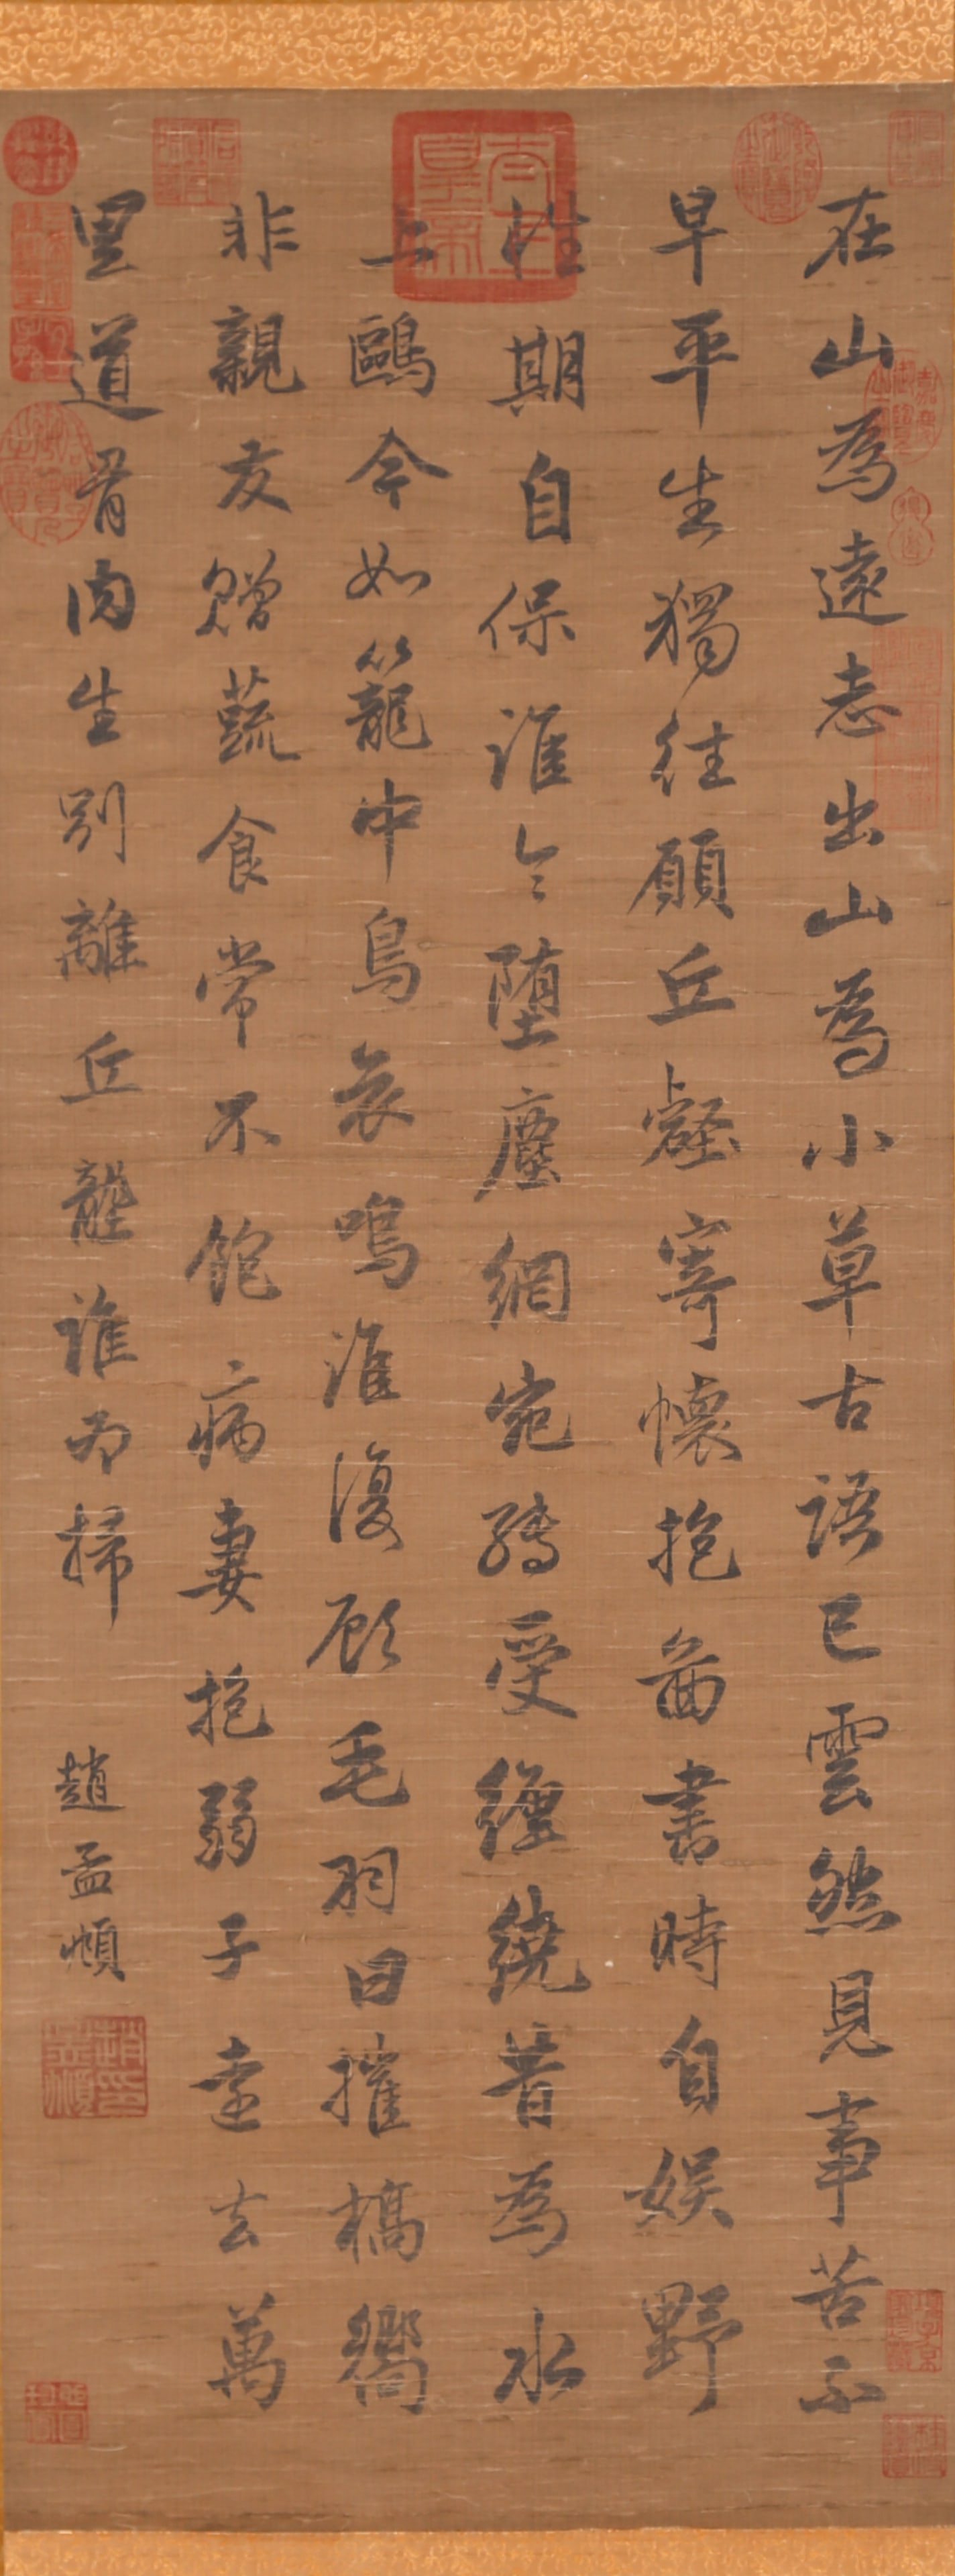 在山為遠志出山為小草古語已雲然見事苦不
早平生獨往願丘壑寄懷抱啚書時自娛野
性期自保誰令墮塵網宛轉受纏繞昔為水
上鷗今如籠中鳥哀鳴誰復顧毛羽日摧槁嚮
非親友贈蔬食常不飽病妻抱弱子遠去萬
里道骨肉生別離丘壟誰為掃
趙孟頫